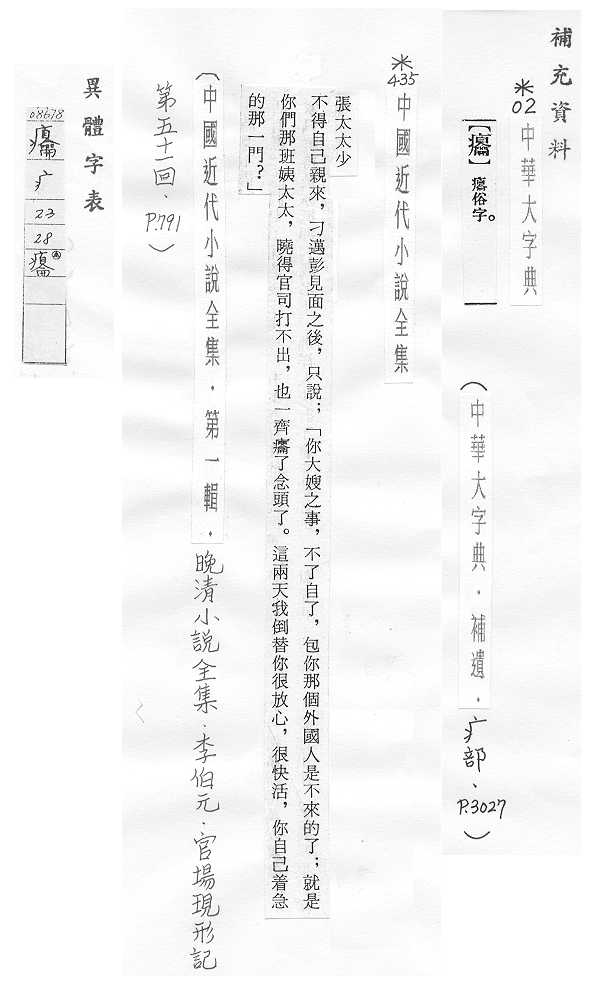 補充資料
*02 中華大字典
俗字。
(中華大字典．補遺．疒部、P.3027)
*435 中國近代小說全集
張太太少
不得自己親來，刁邁彭見面之後，只說；「你大嫂之事，不了自了，包你那個外國人是不來的了；就是
你們那班姨太太，曉得官司打不出，也一齊了念頭了。這兩天我倒替你很放心，很快活，你自己着急
的那一門？」
(中國近代小說全集．第一輯．晚清小說全集．李伯元．官場現形記
第五十一回、P.791)
異體字表
08678
疒
23
28